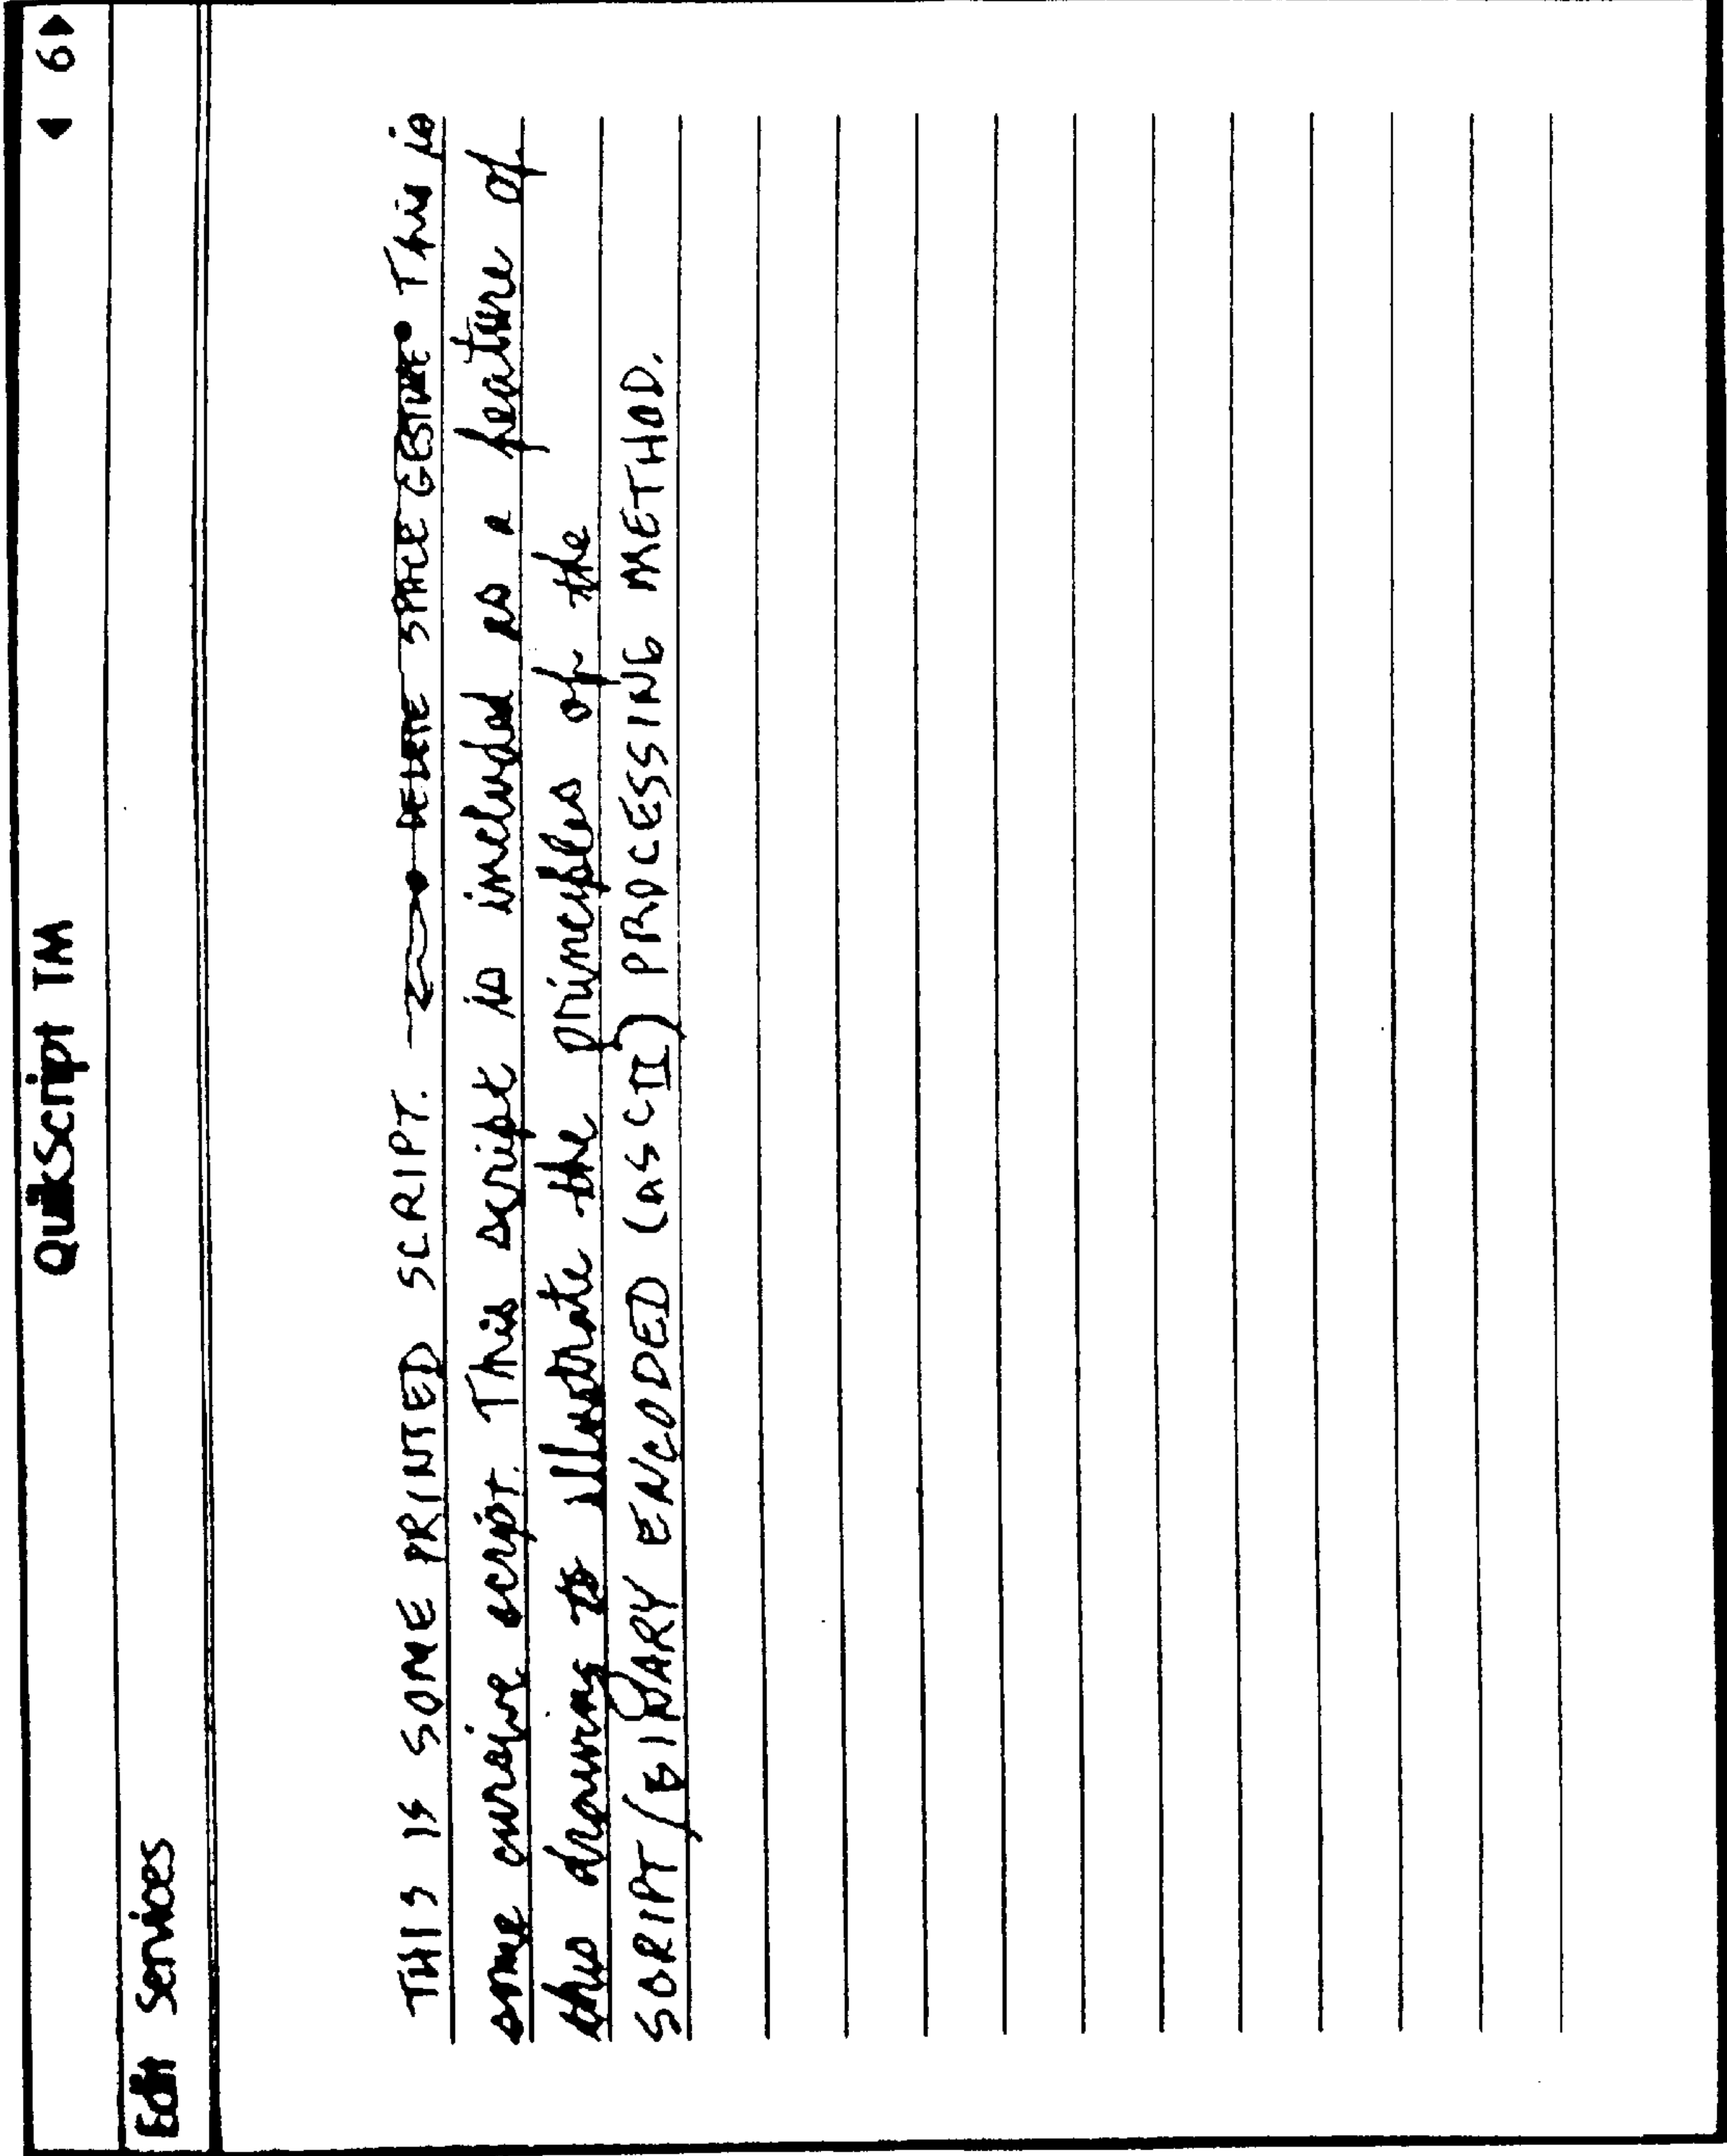 QuikScript TM ◀ 6 ▶
Edit Services
THIS IS SOME PRINTED SCRIPT. DELETE SPACE GESTURE This is
some cursive script. This script is included as a feature of
this drawing to illustrate the principles of the
SCRIPT/BINARY ENCODED (ASCII) PROCESSING METHOD.